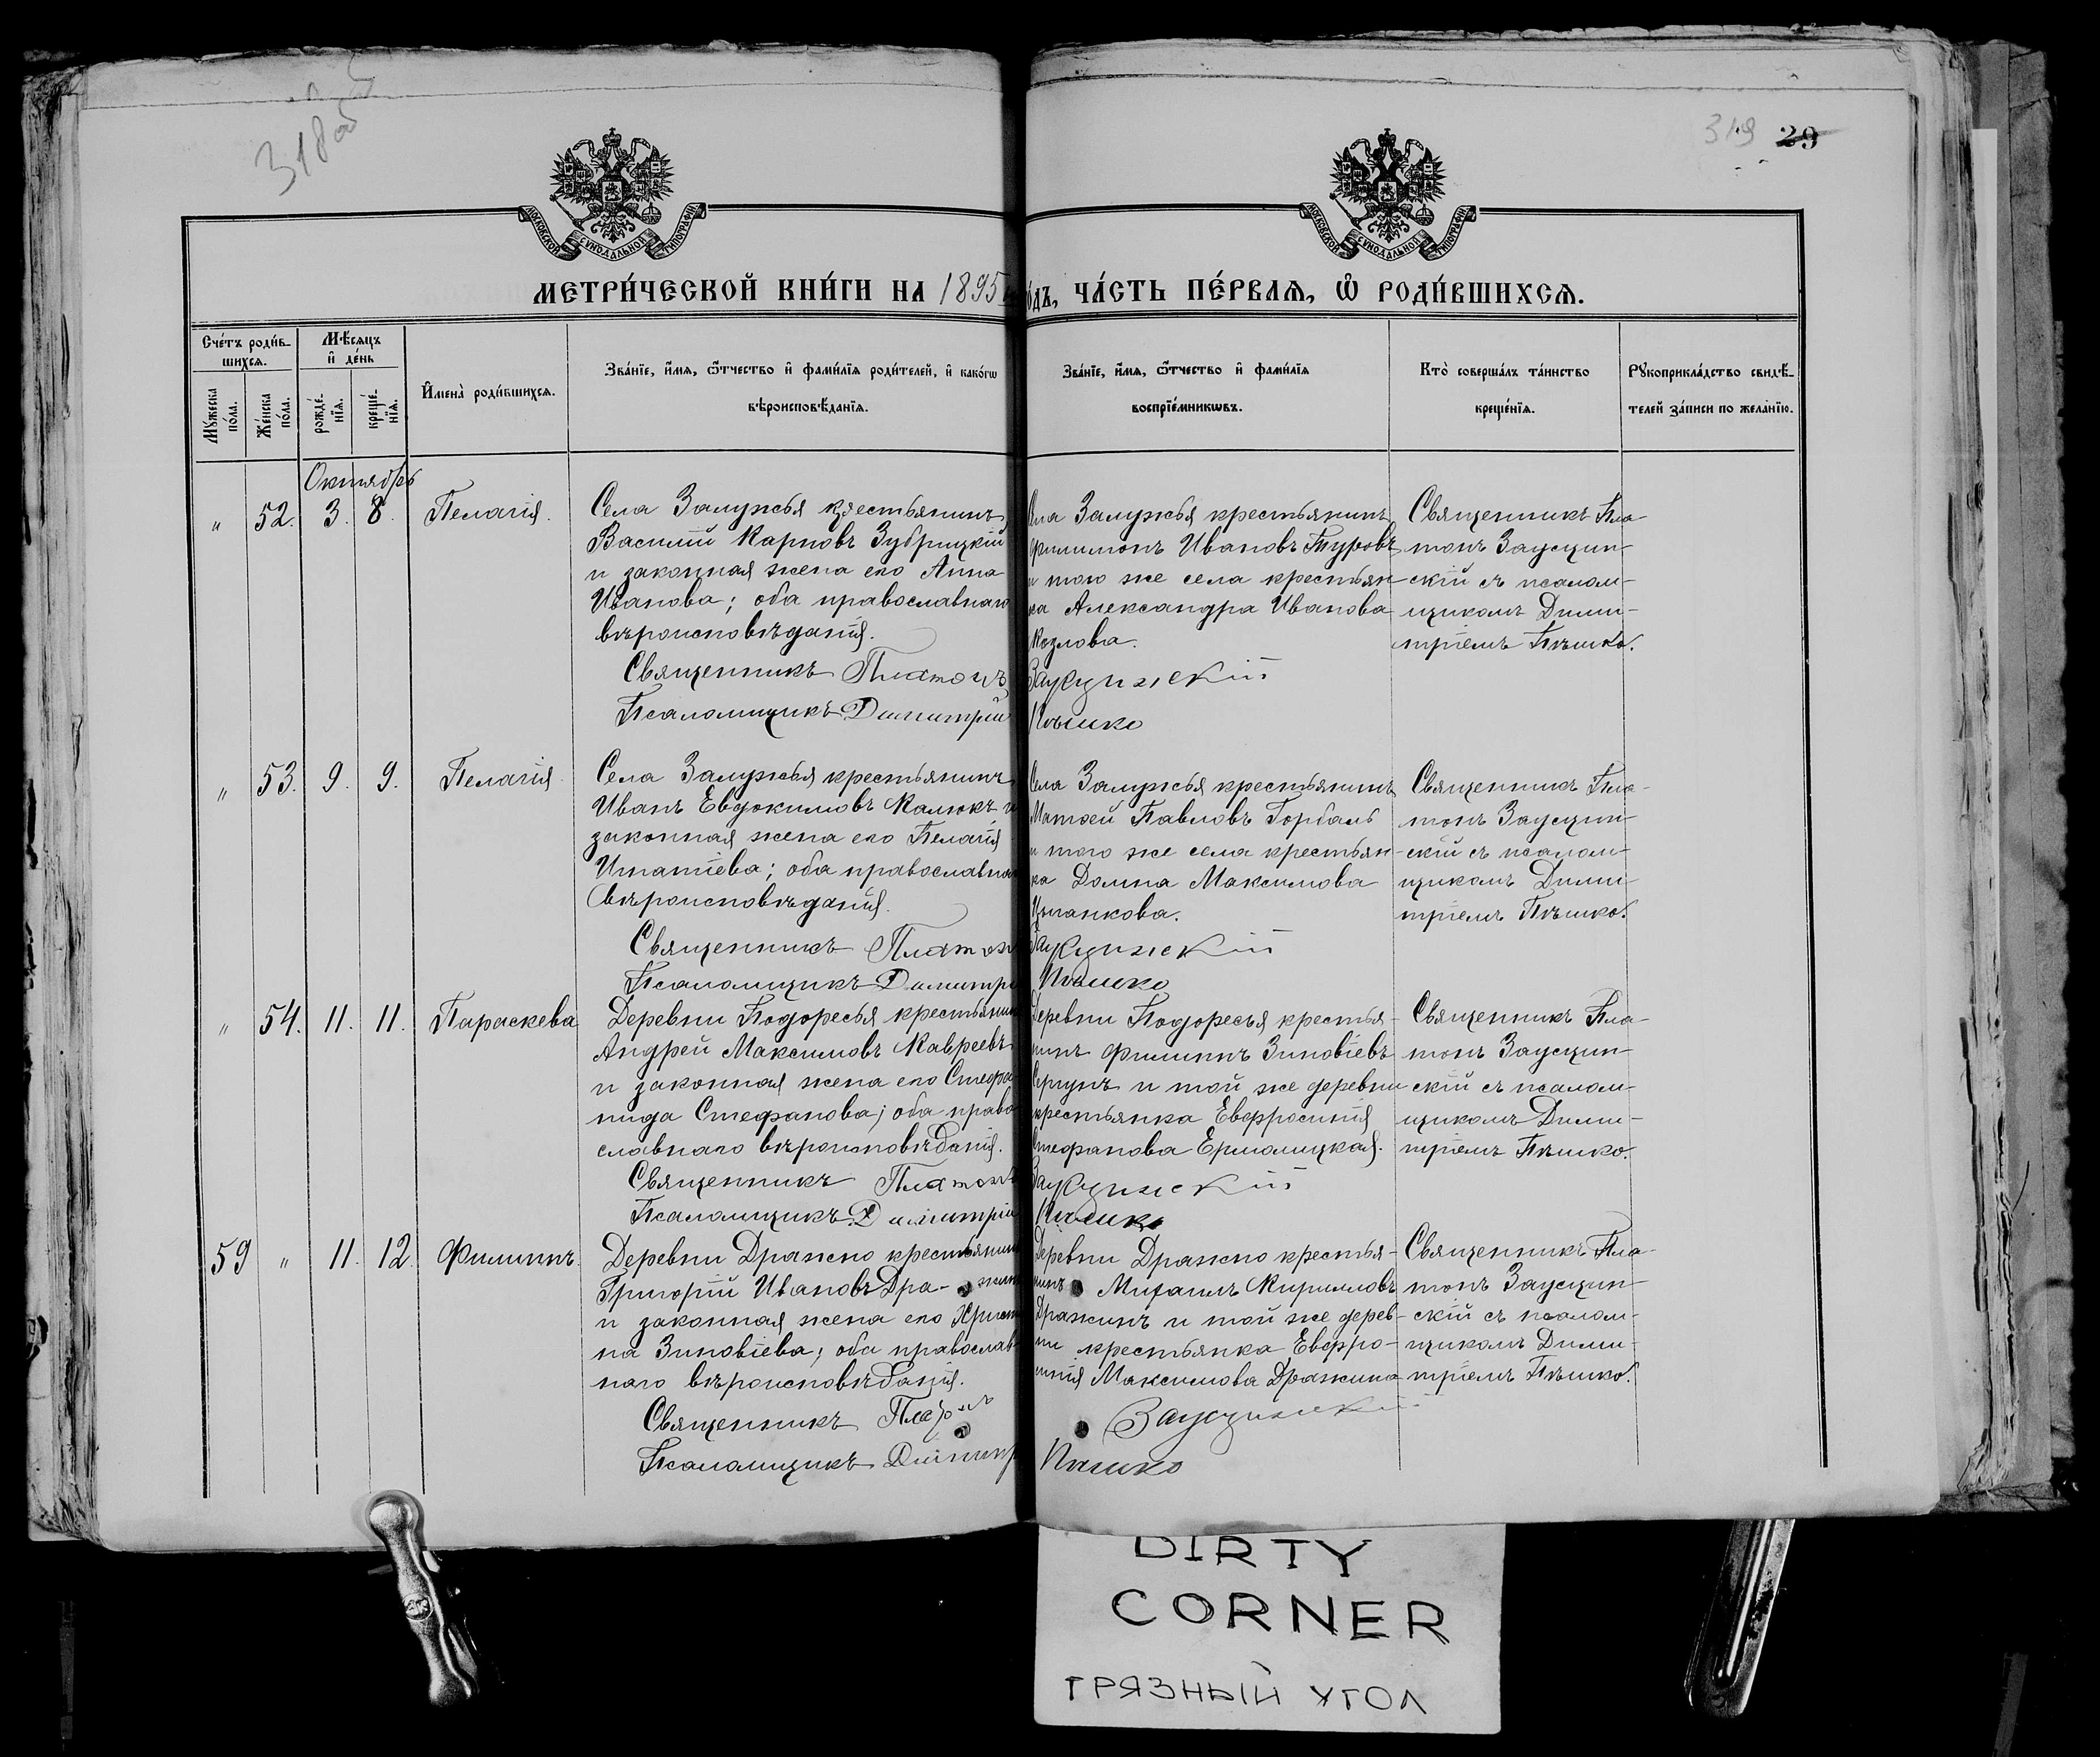 318об
319 29
МОСКОВСКОЙ СУНОДАЛЬНОЙ ТИПОГРАФІИ
МОСКОВСКОЙ СУНОДАЛЬНОЙ ТИПОГРАФІИ
МЕТРИ́ЧЕСКОЙ КНИ́ГИ НА 1895 го́дъ, ЧА́СТЬ ПЕ́РВАѦ, Ѽ РОДИ́ВШИХСѦ.
Сче́тъ роди́в-
шихсѧ.
Мꙋ́жеска по́ла.
Же́нска по́ла.
Мѣ́сѧцъ
и҆ де́нь
рожде́-
нїѧ.
креще́-
нїѧ.
И҆мена̀ роди́вшихсѧ.
Зва́нїе, и҆́мѧ, ѻ҆́тчество и҆ фами́лїѧ роди́телей, и҆ како́гѡ
вѣроисповѣ́данїѧ.
Зва́нїе, и҆́мѧ, ѻ҆́тчество и҆ фами́лїѧ
воспрїе́мникѡвъ.
Кто̀ соверша́лъ та́инство
креще́нїѧ.
Рꙋкоприкла́дство свидѣ́-
телей за́писи по жела́нїю.
Октябрь
" 52. 3. 8. Пелагія.
Села Залужья крестьянинъ
Василій Карповъ Зубрицкій
и законная жена его Анна
Иванова; оба православнаго
вѣроисповѣданія.
Священникъ Платонъ
Псаломщикъ Димитрій
Села Залужья крестьянинъ
Филимонъ Ивановъ Туровъ
и того же села крестьян-
ка Александра Иванова
Козлова.
Заусцинскій
Пѣшко
Священникъ Пла-
тонъ Заусцин-
скій съ псалом-
щикомъ Дими-
тріемъ Пѣшко.
" 53. 9. 9. Пелагія
Села Залужья крестьянинъ
Иванъ Евдокимовъ Калюкъ и
законная жена его Пелагія
Игнатіева; оба православнаго
вѣроисповѣданія.
Священникъ Платонъ
Псаломщикъ Димитрій
Села Залужья крестьянинъ
Матѳей Павловъ Горбаль
и того же села крестьян-
ка Домна Максимова
Цыганкова.
Заусцинскій
Пѣшко
Священникъ Пла-
тонъ Заусцин-
скій съ псалом-
щикомъ Дими-
тріемъ Пѣшко.
" 54. 11. 11. Параскева
Деревни Подоресья крестьянинъ
Андрей Максимовъ Кавреевъ
и законная жена его Стефа-
нида Стефанова; оба право-
славнаго вѣроисповѣданія.
Священникъ Платонъ
Псаломщикъ Димитрій
Деревни Подоресья крестья-
нинъ Филиппъ Зиновіевъ
и той же деревни
крестьянка Евфросинія
Стефанова Ермолицкая.
Заусцинскій
Пѣшко
Священникъ Пла-
тонъ Заусцин-
скій съ псалом-
щикомъ Дими-
тріемъ Пѣшко.
59 " 11. 12 Филиппъ.
Деревни Дражно крестьянинъ
Григорій Ивановъ Дра- жинъ
и законная жена его Христи-
на Зиновіева; оба православ-
наго вѣроисповѣданія.
Священникъ Платонъ
Псаломщикъ Димитрій
Деревни Дражно крестья-
нинъ Михаилъ Кирилловъ
Дражинъ и той же дерев-
ни крестьянка Евфро-
синія Максимова Дражина
Заусцинскій
Пѣшко
Священникъ Пла-
тонъ Заусцин-
скій съ псалом-
щикомъ Дими-
тріемъ Пѣшко.
DIRTY
CORNER
ГРЯЗНЫЙ УГОЛ